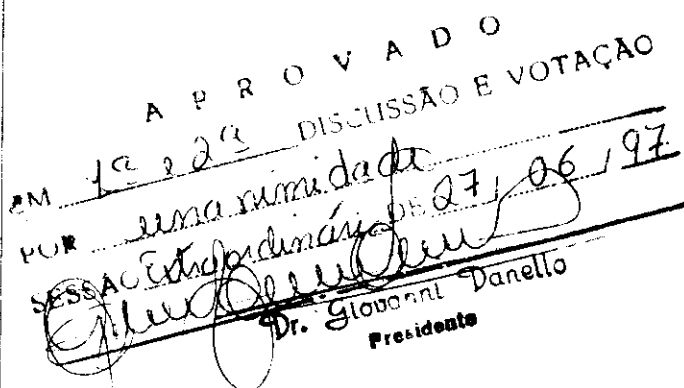 A P R O V A D O
EM 1ª e 2ª DISCUSSÃO E VOTAÇÃO
POR unanimidade
SESSÃO Extraordinária DE 27 / 06 / 97
Dr. Giovanni Danello
Presidente